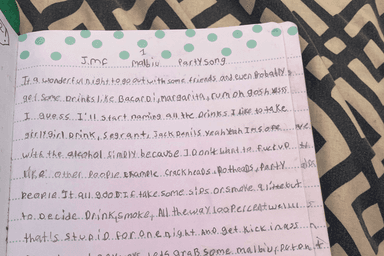 1
J.mF malbiu Partysong
It a wonderful night to go out with some friends, and even Probably
get some Drinks like Bacardi, margarita, rum oh gosh
I guess I'll start naming all the Drinks I like to take
girly Girl Drink, Segrant, Jack Denils yeah Yeah Insane
with the alcohol simply because I Don't want to
like other People Example Crackheads, Potheads, Party
People It all good If take some sips or smoke a little but
to Decide Drink, smoke, All the way 100 Percent
that's stupid for one night And get kick in ass
lets grab some malbiu, Put on